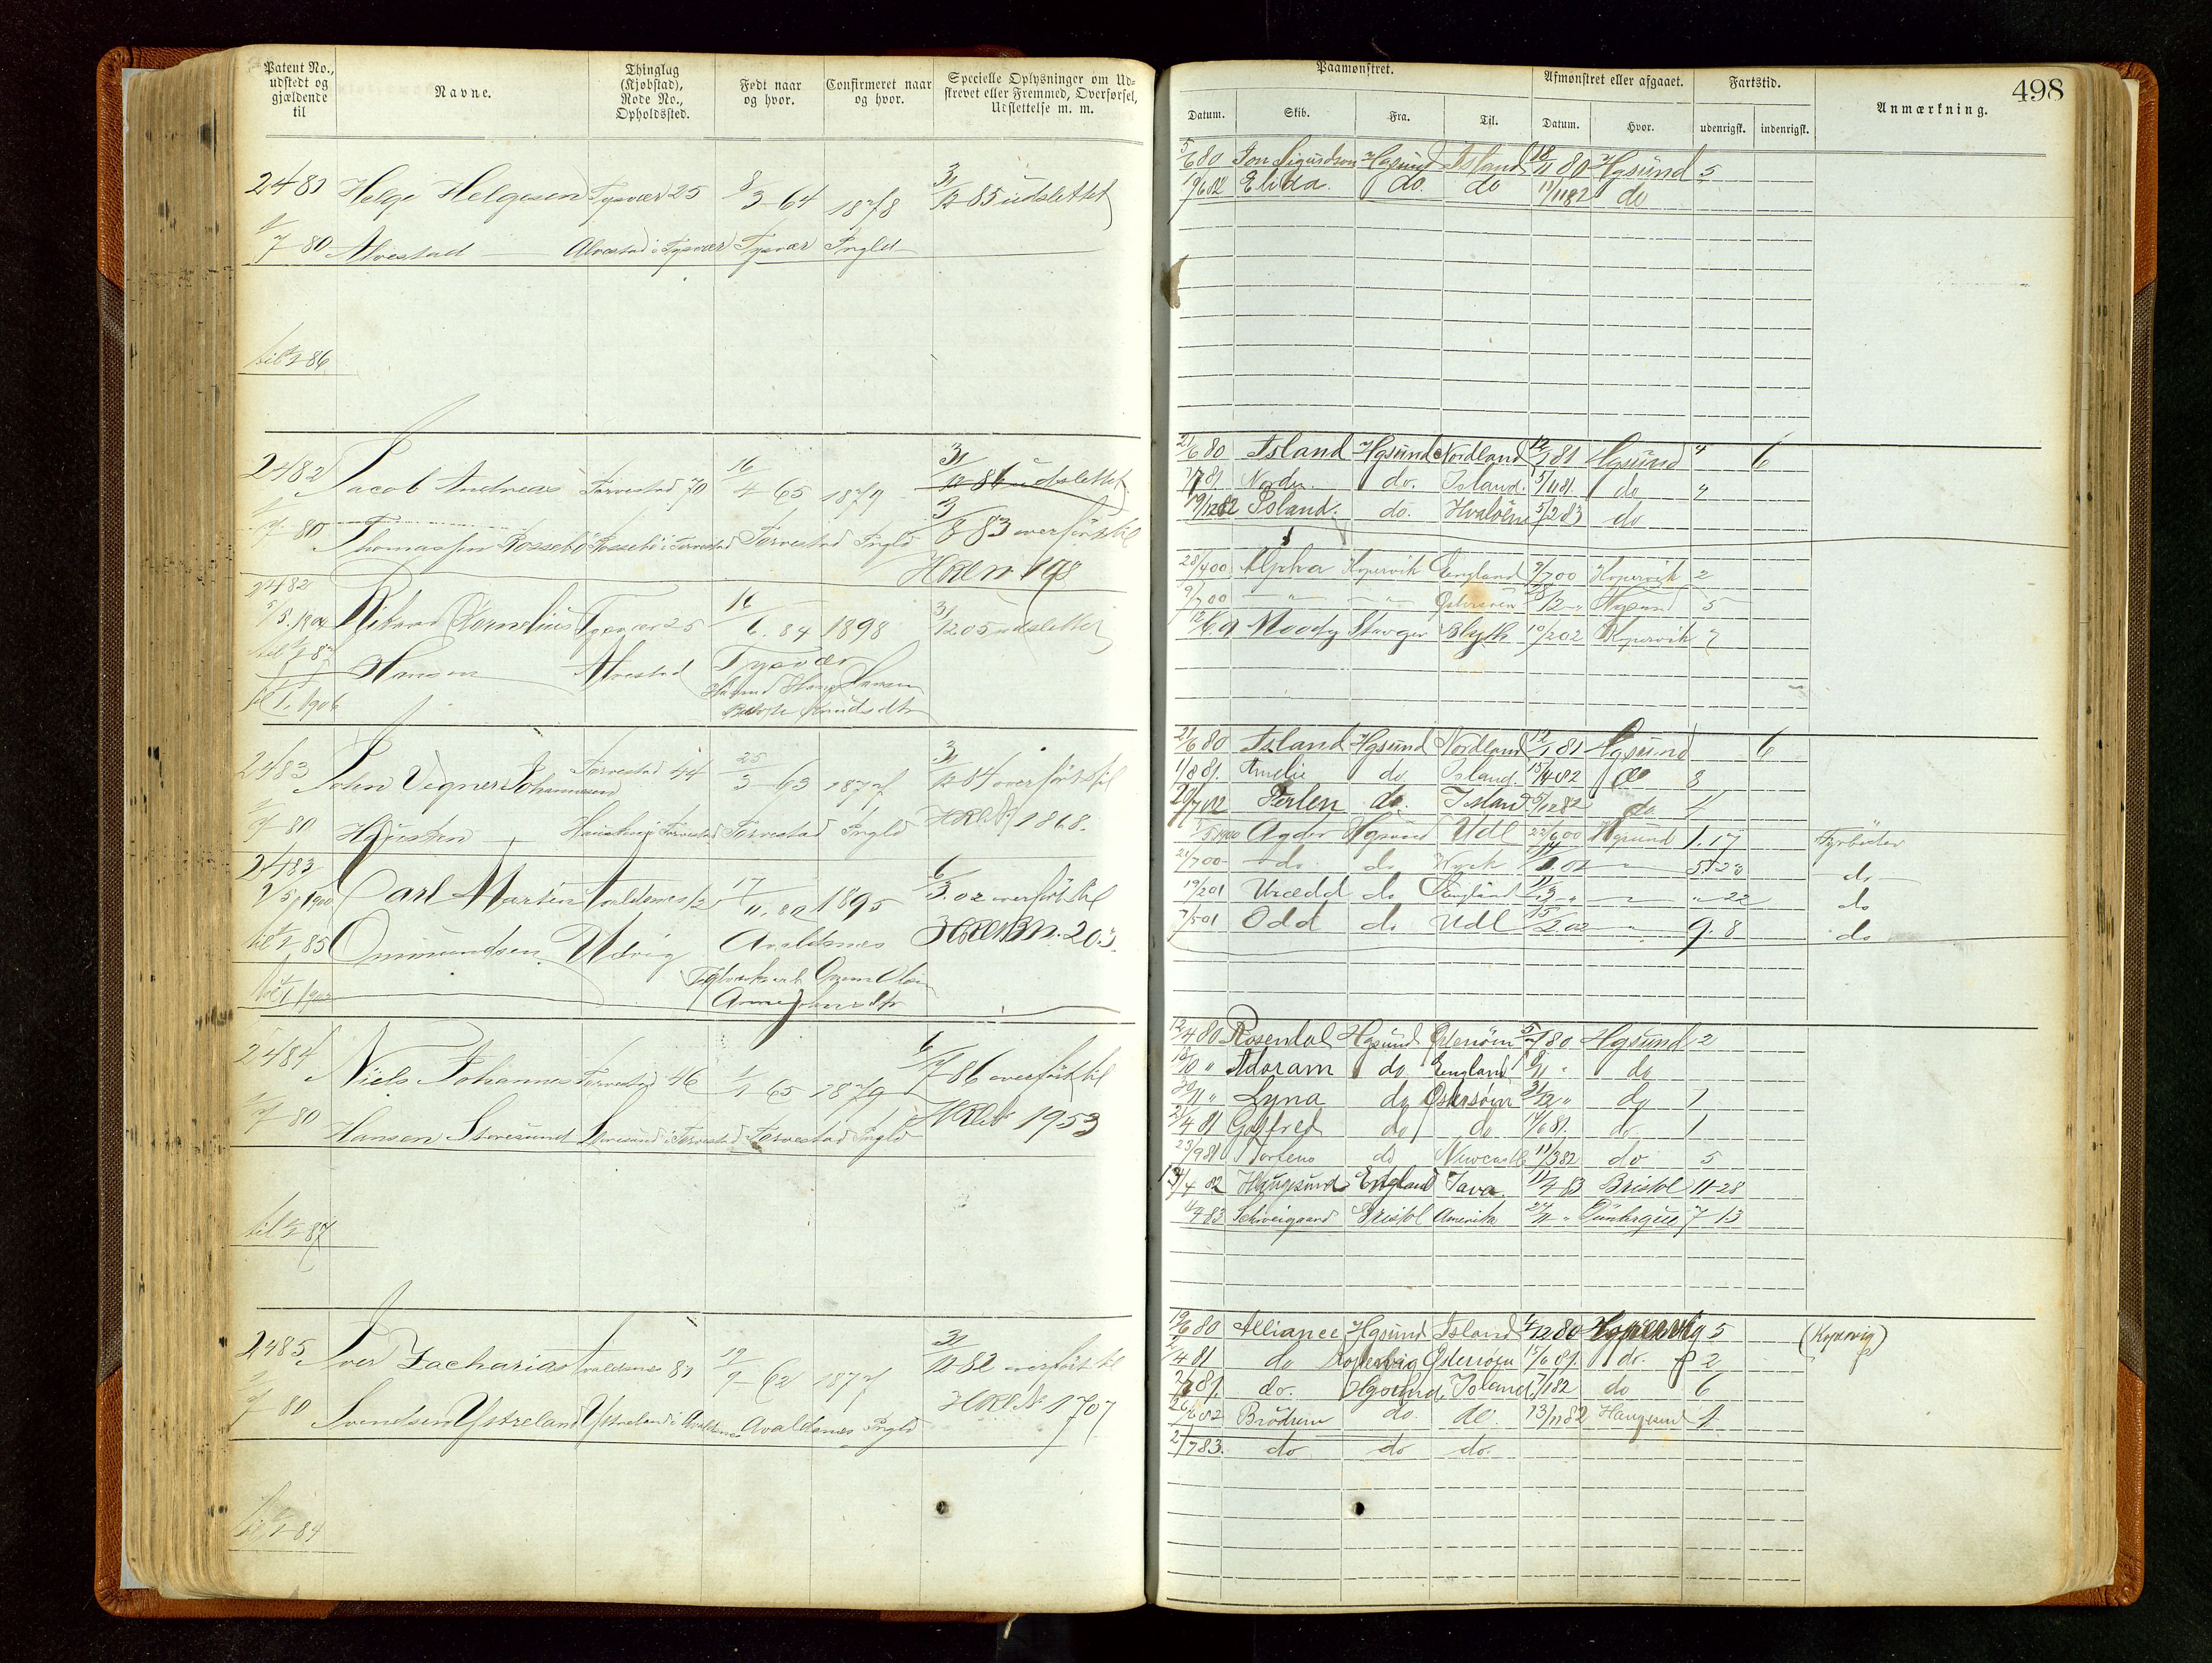 Patent No.,
udstedt og
gjældende
til
Navne.
Thinglag
(Kjøbstad),
Rode No.,
Opholdssted.
Født naar
og hvor.
Confirmeret naar
og hvor.
Specielle Oplysninger om Ud-
skrevet eller Fremmed, Overførsel,
Udslettelse m. m.
2481 Helge Helgesen Tysvær 25 8/3 64 1878 31/12 85 udslettet
1/7 80 Alvestad Alvestad i Tysvær Tysvær Ingld
til 1/1 86
2482 Jacob Andreas Torvestad 70 16/4 65 1879 31/12 86 udslettet
1/7 80 Thomassen Rossebø Rossebø i Torvestad Torvestad Ingld 3/8 83 overført til
2482
5/5 1900 Rikard Kornelius Tysvær 25 16/6 84 1898 31/12 05 udslettet
til 1/1 87 Hansen Alvestad Tysvær
Knudsdtr
til 1/1 1906
2483 John Vegner Johannesen Torvestad 44 25/3 63 1877 31/12 84 overført til
1/7 80 Hausken Hausken i Torvestad Torvestad Ingld 1868.
2483
2/5 1900 Carl Martin Avaldsnes 12 17/11 80 1895 6/3 02 overført til
til 1/1 85 Ommundsen Utvig Avaldsnes 203.
til 1/1 1902
2484 Niels Johannes Torvestad 46 1/1 65 1879 6/7 86 overført til
1/7 80 Hansen Storesund Storesund i Torvestad Torvestad Ingld 1953
til 1/1 87
2485 Iver Zacharias Avaldsnes 81 19/9 62 1877 31/12 82 overført til
1/7 80 Svendsen Ystreland Ystreland i Avaldsnes Avaldsnes Ingld 1707
til 1/1 84
498
Paamønstret.
Afmønstret eller afgaaet.
Fartstid.
Anmærkning.
Datum. Skib. Fra. Til. Datum. Hvor. udenrigsk. indenrigsk.
5/6 80 Jon Sigurdson Hgsund Island 18/11 80 Hgsund 5
19/6 82 Elida do. do 11/11 82 do
21/6 80 Island Hgsund Nordland 12/1 81 Hgsund 4 6
7/7 81 Nordn do. Island. 5/11 81 do 4
19/12 82 Island. do. Hvaløene 5/2 83 do
28/4 00 Alpha Kopervik England 9/7 00 Kopervik 2
9/7 00 Østersøen Hgsund 5
12/6 01 Moody Stavger Blyth 10/2 02 Kopervik 7
21/6 80 Island Hgsund Nordland 12/1 81 Hgsund 6
1/8 81. Amelie do. Island. 15/4 82 do 8
20/7 82 Perlen do. Island 5/12 82 do 4
5/5 1900 Agder Hgsund Udl 22/6 00 Hgsund 1.17 Fyrbøder
21/7 00 do do 5.23 do
19/2 01 Urædd do England " 22 do
7/5 01 Odd do Udl 15/2 02 " 9.8 do
12/4 80 Rosendal Hgsund Østersøen 5/7 80 Hgsund 2
18/10 " Adoram do England 8/11 " do
30/11 " Lyna do Østersøen 31/12 " do 1
21/4 81 Gotfred do do 14/6 81. do 1
23/9 81 do Newcastle 11/3 82 do 5
14/4 82 Haugesund England Java 11/4 83 Bristol 11-28
11/4 83 Schweigaard Bristol Amerika 24/11 " Dunkrque 7 13
19/6 80 Alliance Hgsund Island 4/12 80 Kopervig 5 (Kopervig)
1/4 81 do Kopervig Østersøen 15/6 81. do. 2
2/7 81. do. Hgsund. Island. 7/1 82 do 6
26/6 82 Brødrene do. do. 13/11 82 Haugesund 4
2/7 83. do do do.